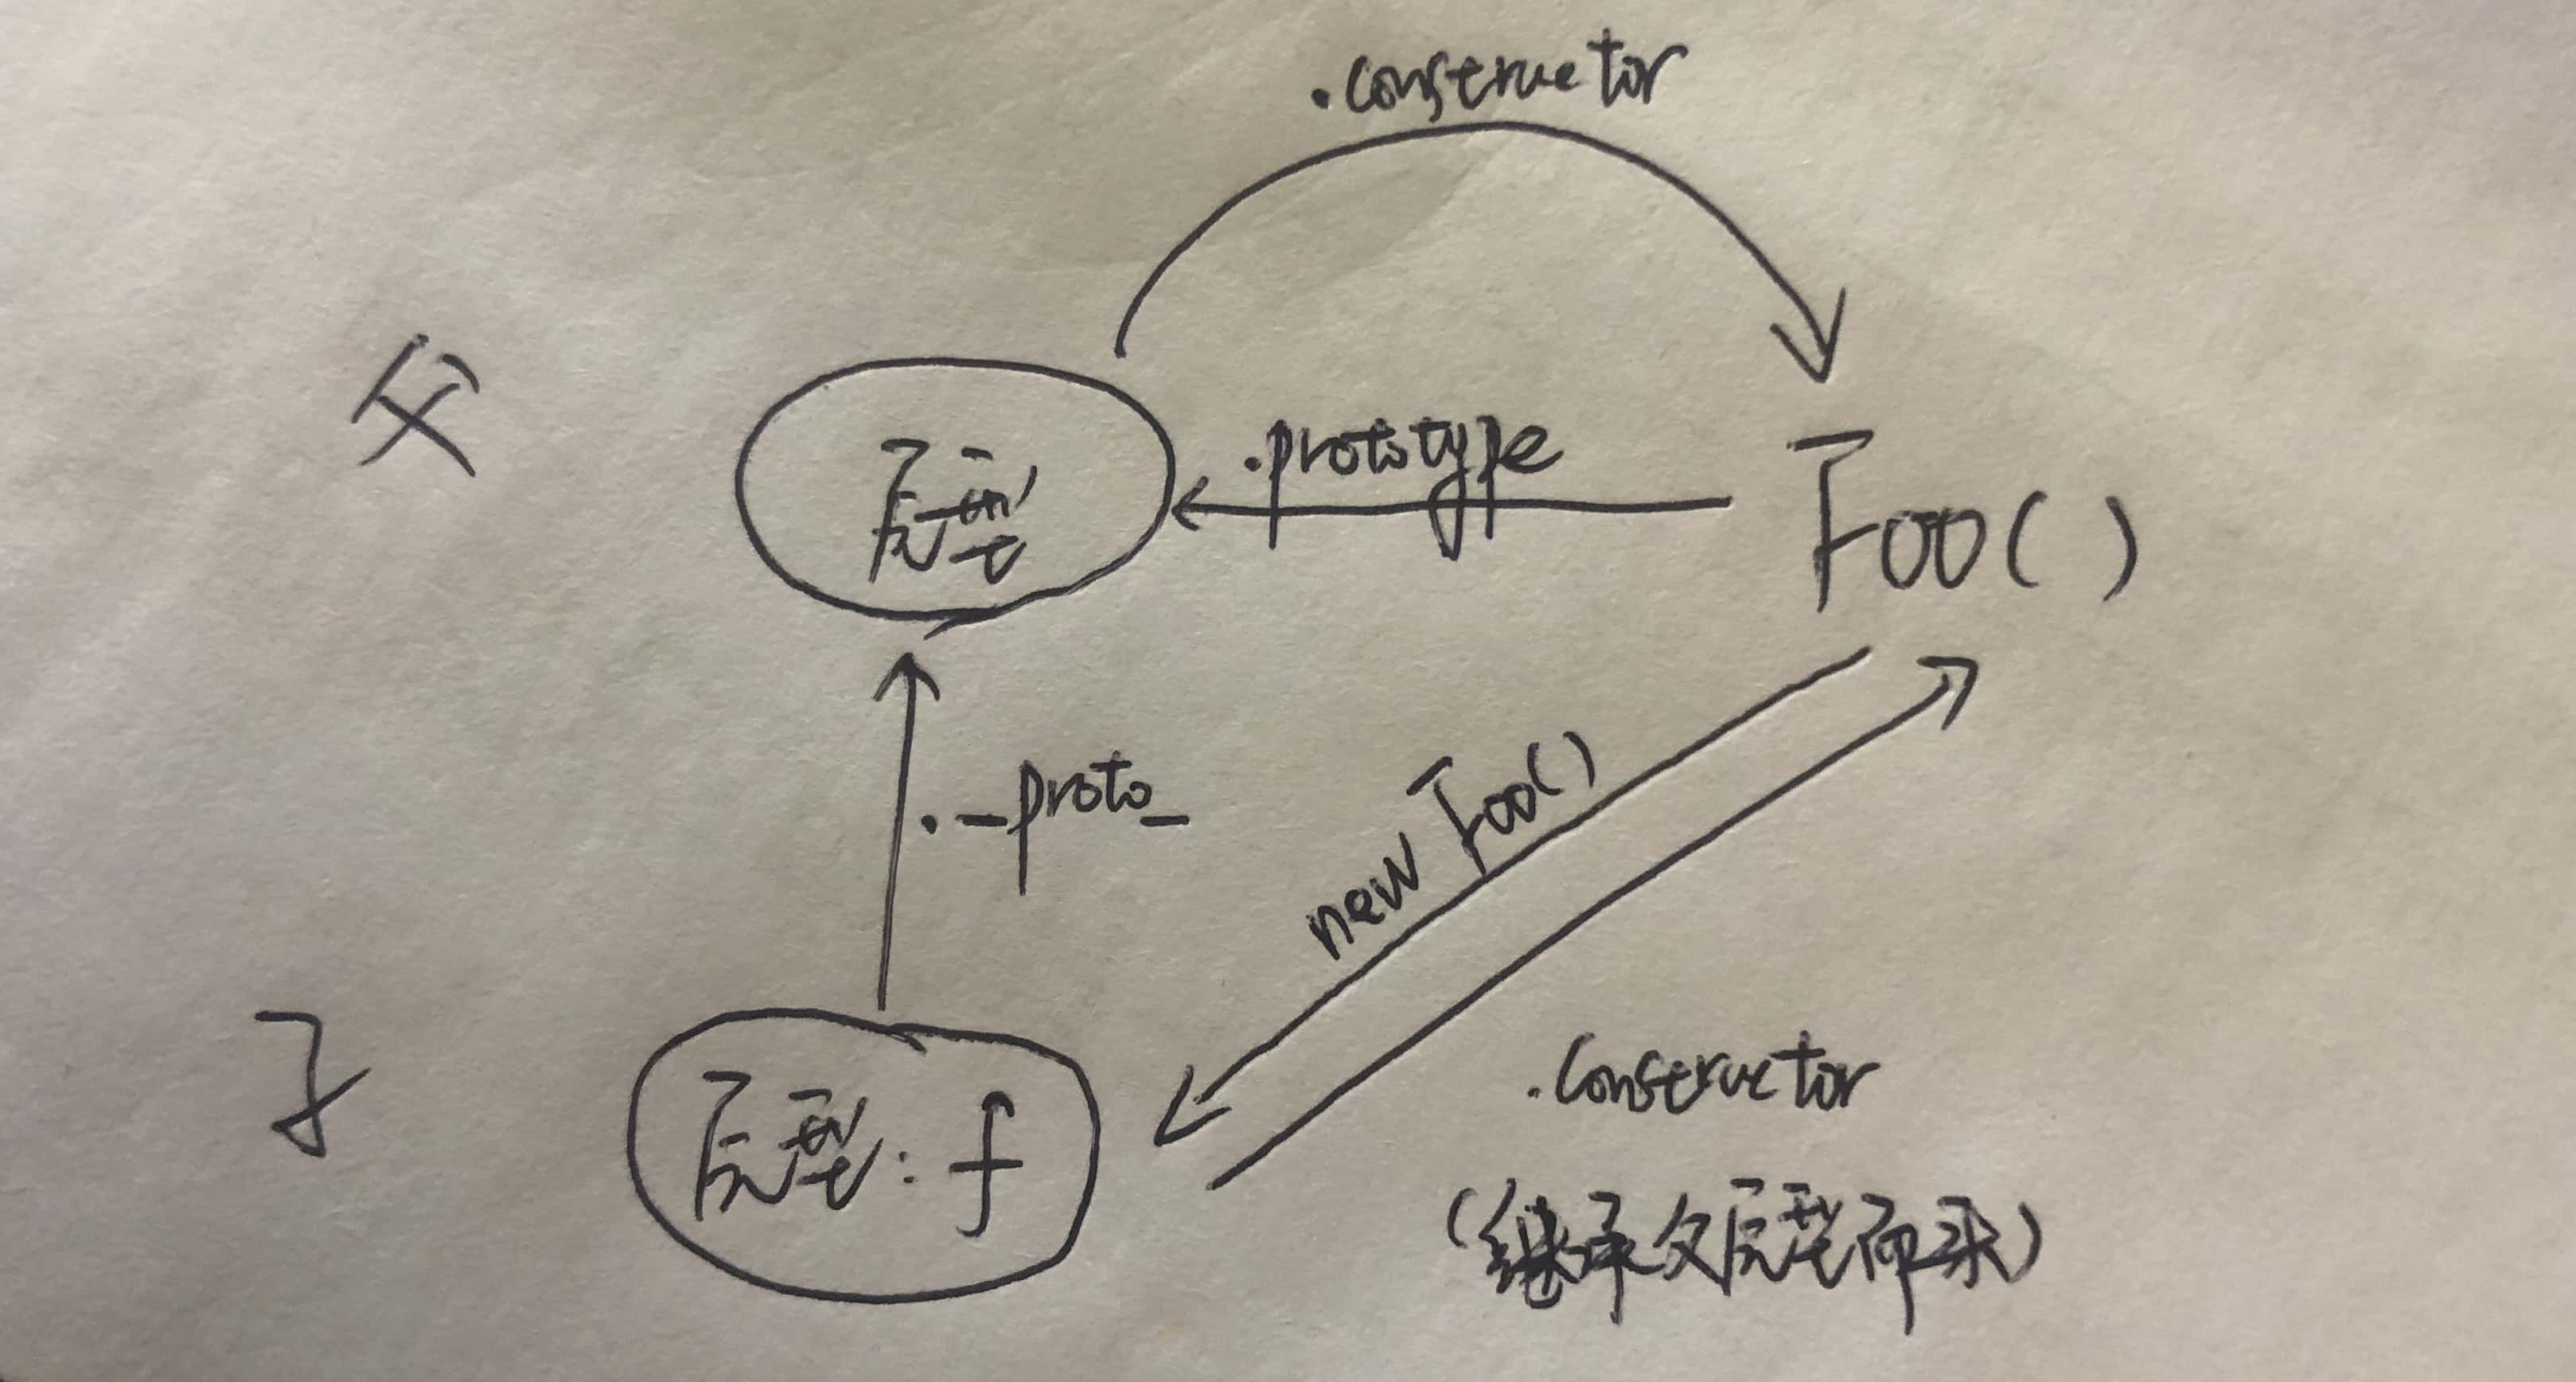 .constructor
父
原型
.prototype
Foo()
._proto_
new Foo()
子
原型：f
.constructor
(继承父原型而来)